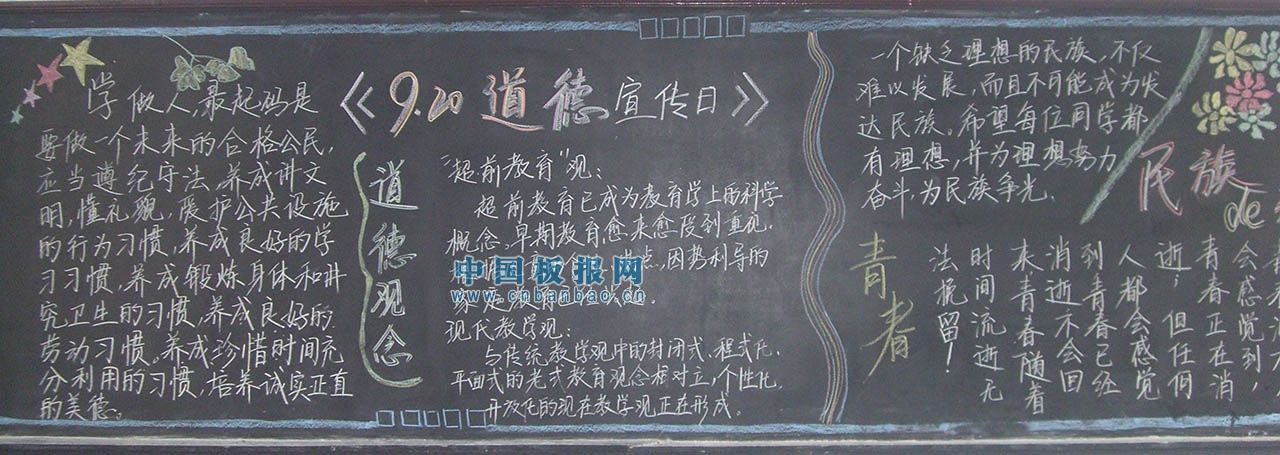 学做人,最起码是
要做一个未来的合格公民,
应当遵纪守法,养成讲文
明,懂礼貌,爱护公共设施
的行为习惯,养成良好的学
习习惯,养成锻炼身体和讲
究卫生的习惯,养成良好的
劳动习惯,养成珍惜时间充
分利用的习惯,培养诚实正直
的美德。
《9.20道德宣传日》
道德观念
"超前教育"观:
超前教育已成为教育学上的科学
概念,早期教育愈来愈受到重视.
点,因势利导的
现代教学观:
与传统教学观中的封闭式、程式化、
平面式的老式教育观念相对立,个性化、
开放化的现在教学观正在形成。
中国板报网
www.cnbanbao.cn
一个缺乏理想的民族,不仅
难以发展,而且不可能成为发
达民族。希望每位同学都
有理想,并为理想努力
奋斗,为民族争光.
民族
de
青春
会感觉到,
青春正在消
逝,但任何
人都会感觉
到青春已经
消逝不会回
来青春随着
时间流逝无
法挽留!